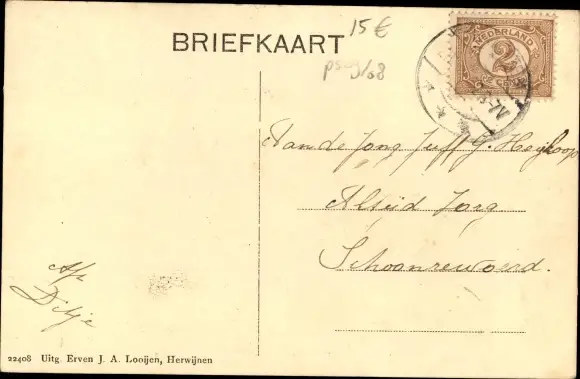 15 €
BRIEFKAART
NEDERLAND
2
CENT
Aan de Jong Juff G. Heykoop
Altijd Zorg
Schoonrewoerd.
Af
Ditje
22408 Uitg. Erven J. A. Looijen, Herwijnen